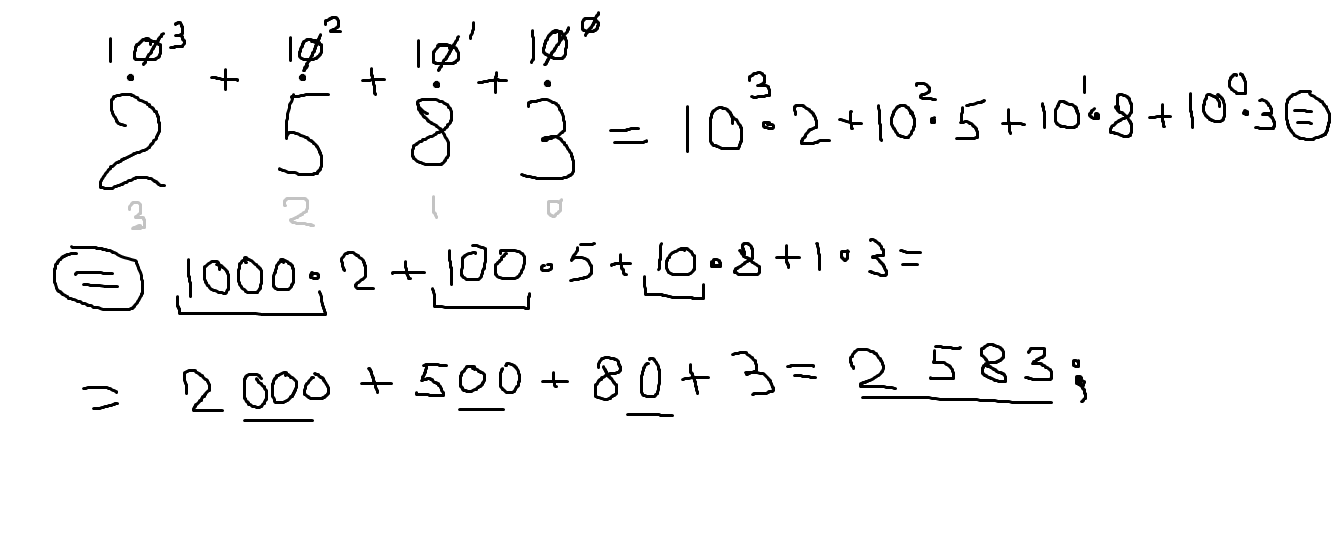 10³ 10² 10¹ 10⁰
· + · + · + ·
2 5 8 3 = 10³·2+10²·5+10¹·8+10⁰·3=
3 2 1 0
= 1000·2+100·5+10·8+1·3=
= 2000+500+80+3=2 583;